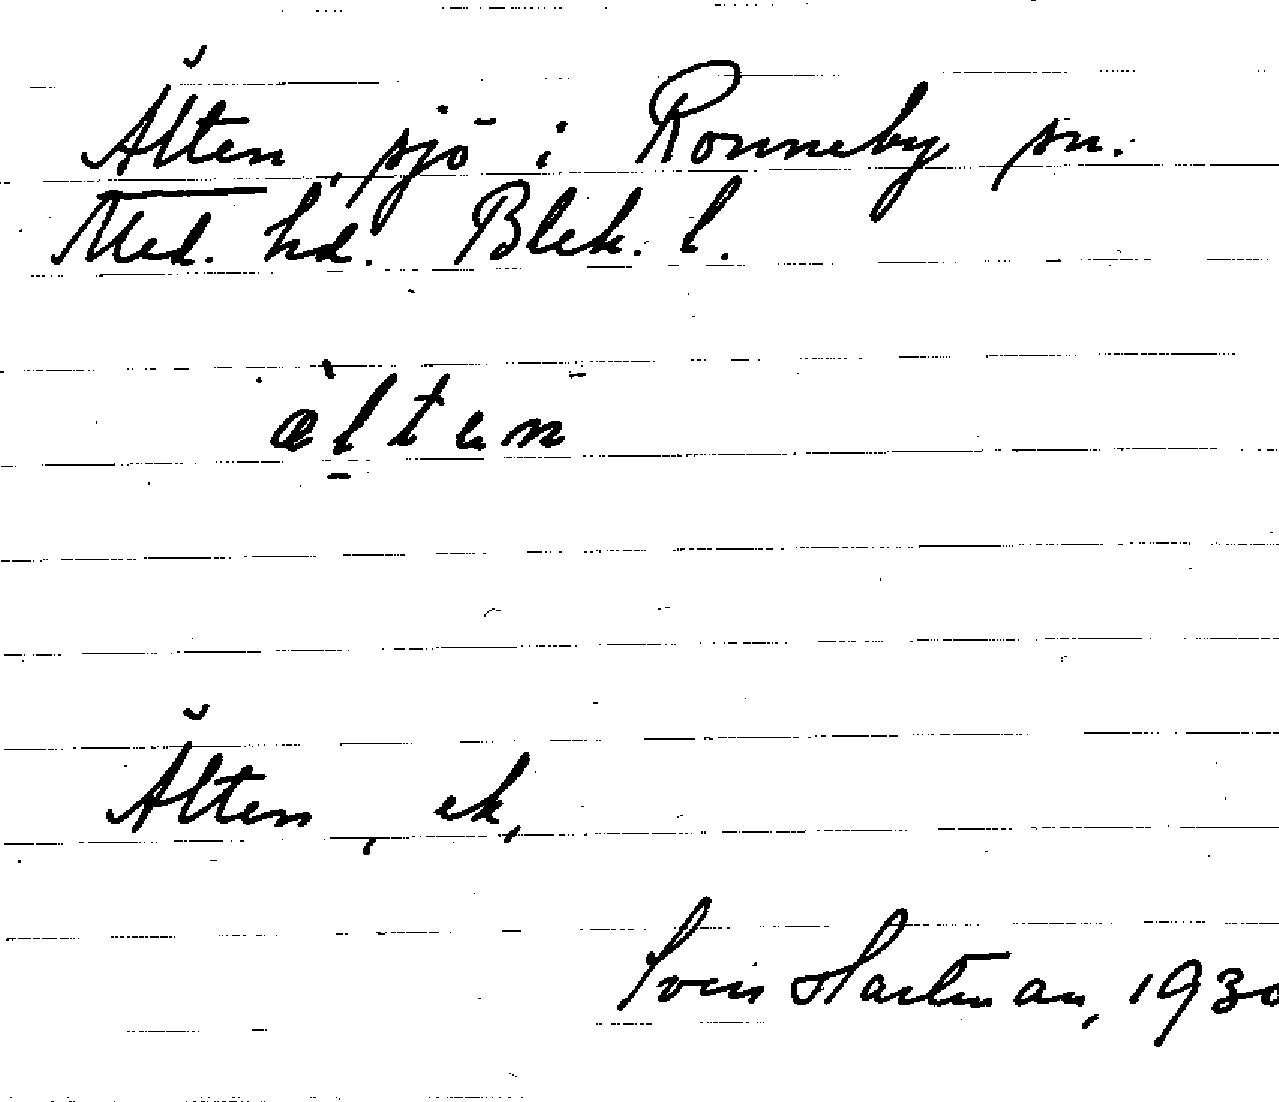 Älten, sjö i Ronneby sn.
Med. hd. Blek. l.
æ̀ltən
Älten, ek,
Sven Hartman, 1930